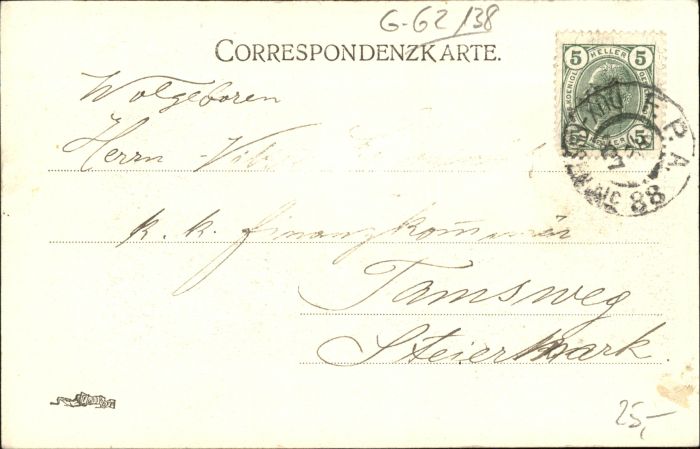 G-62/138
CORRESPONDENZKARTE.
5 HELLER 5
Wolgeboren
Herrn
k. k. Finanzkommissär
Tamsweg
Steiermark.
F.P.A.
88
25,-